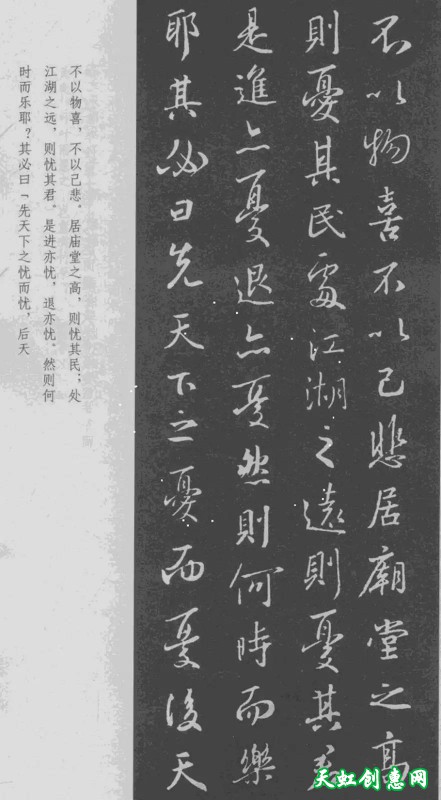 不以物喜不以己悲居廟堂之高
則憂其民處江湖之遠則憂其君
是進亦憂退亦憂然則何時而樂
耶其必曰先天下之憂而憂後天
不以物喜，不以己悲。居庙堂之高，则忧其民；处
江湖之远，则忧其君。是进亦忧，退亦忧。然则何
时而乐耶？其必曰「先天下之忧而忧，后天
天虹创惠网